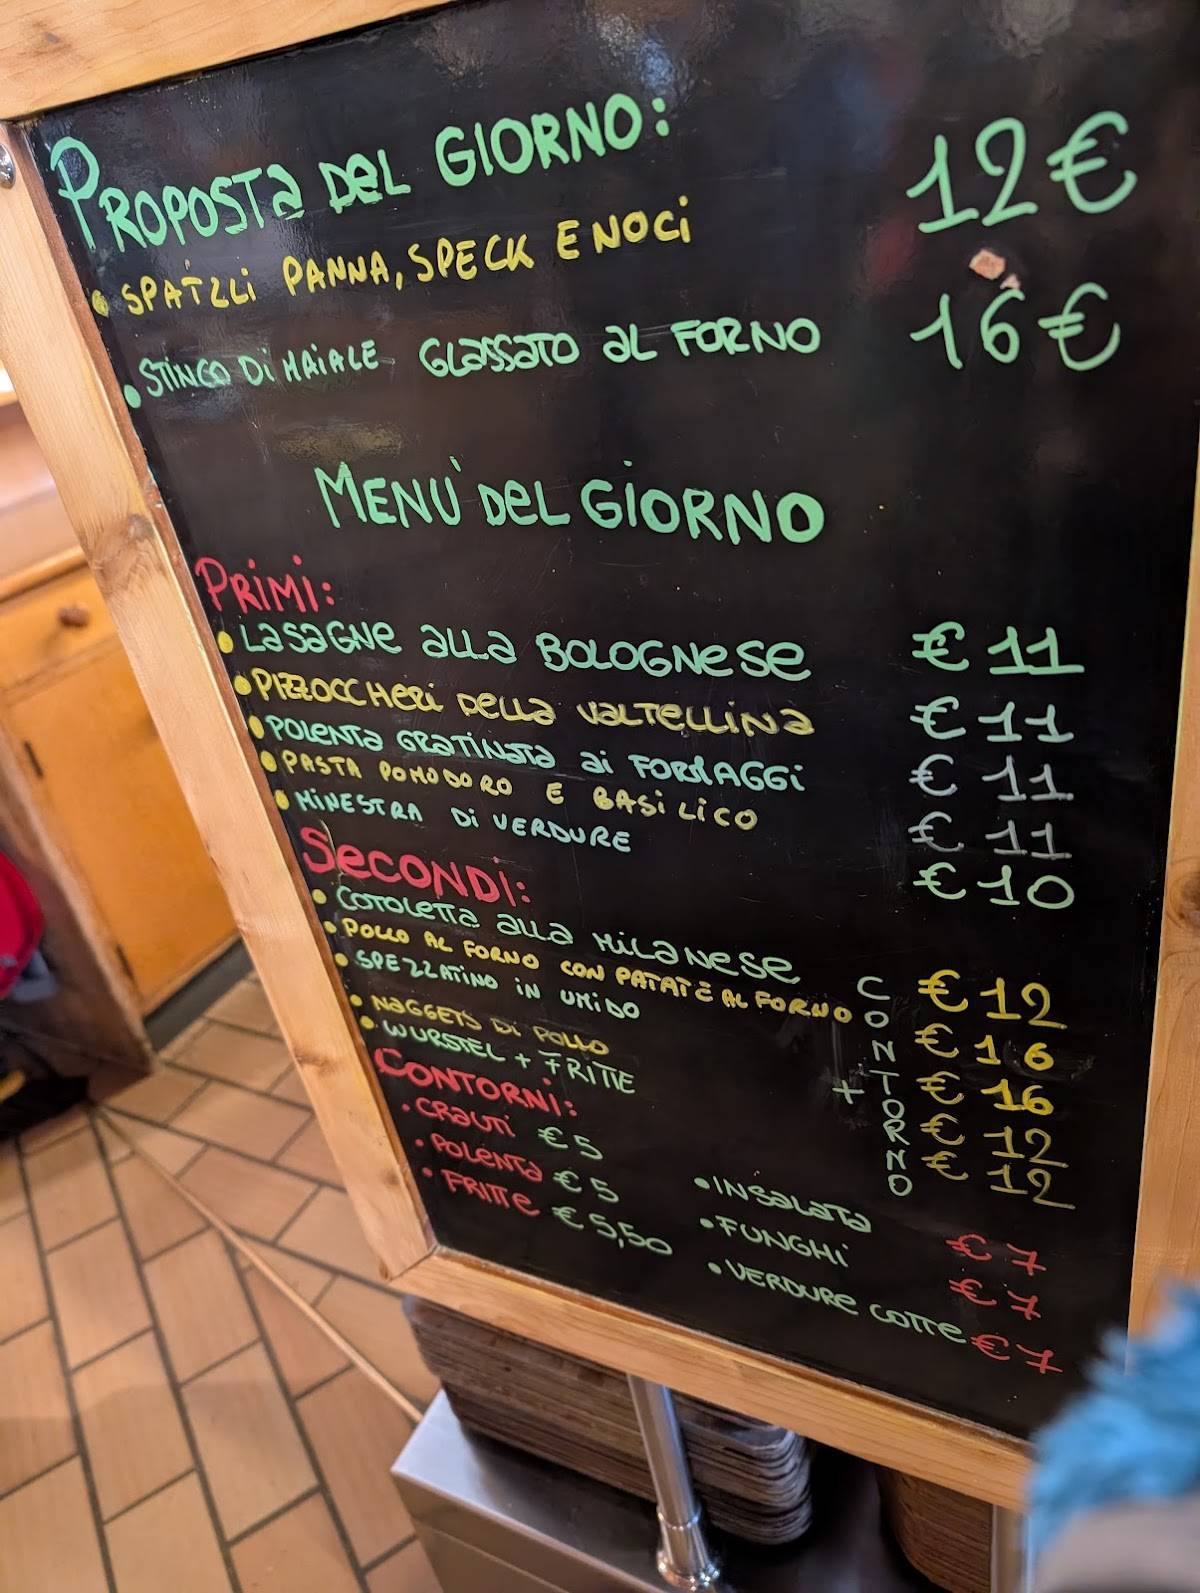 PROPOSTA DEL GIORNO:
• SPATZLI PANNA, SPECK E NOCI 12€
• STINCO DI MAIALE GLASSATO AL FORNO 16€
MENÙ DEL GIORNO
PRIMI:
• LASAGNE ALLA BOLOGNESE € 11
• PIZZOCCHERI DELLA VALTELLINA € 11
• POLENTA GRATINATA AI FORMAGGI € 11
• PASTA POMODORO E BASILICO € 11
• MINESTRA DI VERDURE € 10
SECONDI:
• COTOLETTA ALLA MILANESE € 12
• POLLO AL FORNO CON PATATE AL FORNO € 16
• SPEZZATINO IN UMIDO € 16
• NAGGETS DI POLLO € 12
• WURSTEL + FRITTE € 12
+ CONTORNO
CONTORNI:
• CRAUTI € 5
• POLENTA € 5
• FRITTE € 5,50
• INSALATA € 7
• FUNGHI € 7
• VERDURE COTTE € 7